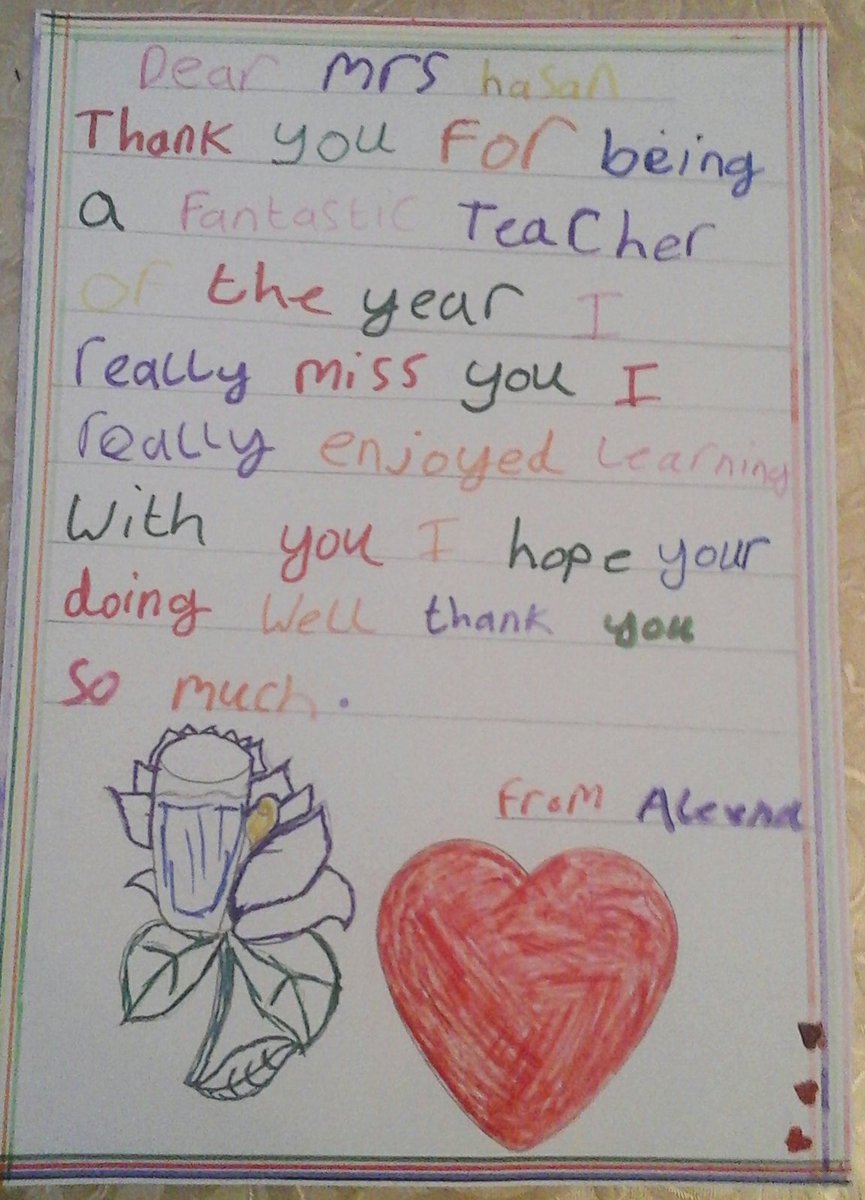 Dear mrs hasan
Thank you For being
a Fantastic Teacher
of the year I
really miss you I
really enjoyed Learning
With you I hope your
doing Well thank you
So much.
From Alexna